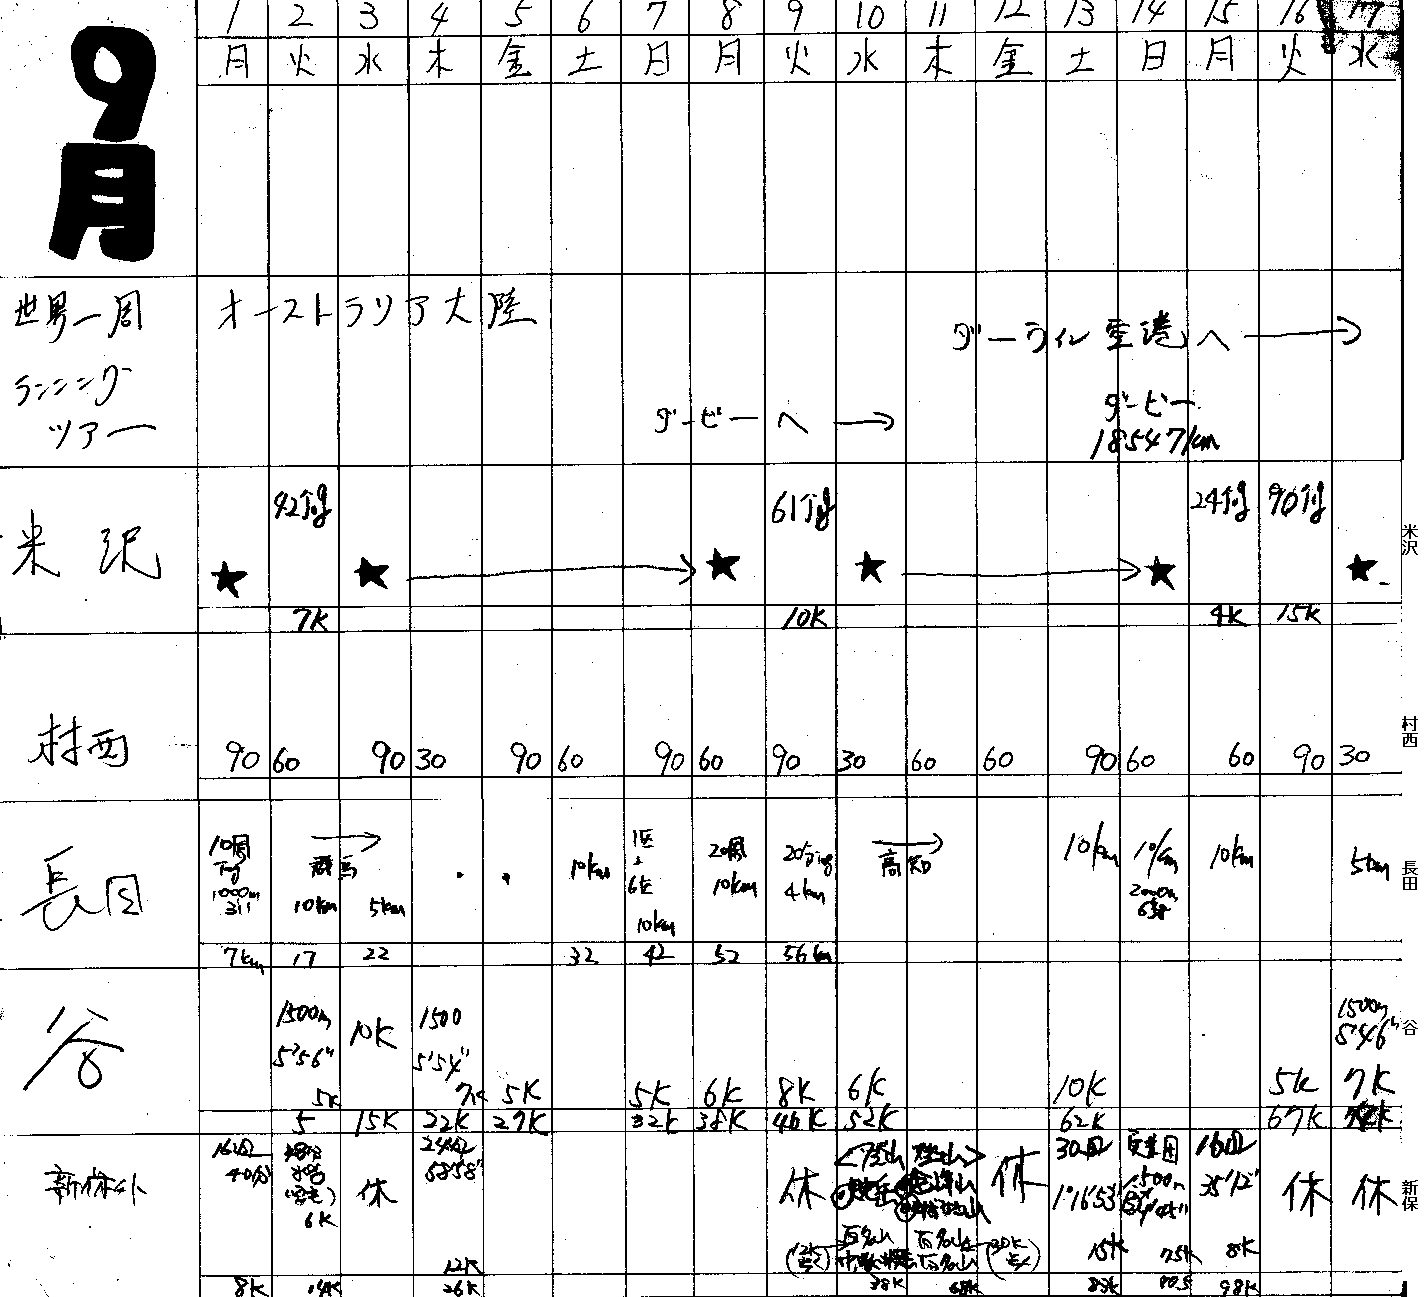 9月
1 2 3 4 5 6 7 8 9 10 11 12 13 14 15 16 17
月 火 水 木 金 土 日 月 火 水 木 金 土 日 月 火 水
世界一周 オーストラリア大陸
ランニング
ツアー
ダーウィン空港へ →
ダービーへ →
ダービー
18547km
米沢
42分jog 61分jog 24分jog 90分jog
★ ★ → ★ ★ → ★ ★
7K 10K 4K 15K
米沢
村西
90 60 90 30 90 60 90 60 90 30 60 60 90 60 60 90 30
村西
長田
10周 jog 1000m 311
→ 群馬 10km 5km
10km
1区 6区 10km
20周 10km
20分jog 4km
→ 高知
10km
10km 2000m
10km
5km
7km 17 22 32 42 52 56km
長田
谷
1500m 5'56" 5K
10K
1500 5'54" 7K
5K 5K 6K 8K 6K 10K 5K
1500m 5'46" 7K
5 15K 22K 27K 32K 38K 46K 52K 62K 67K
谷
新保
16周 40分
6K
休
24周 58'58" 12K
休
<登山 登山>
百名山 百名山
休
30周 1°16'53" 15K
1500m 7.5K
16周 35'12" 8K
休 休
8K 14K 26K 38K 68K 83K 90.5 98K
新保